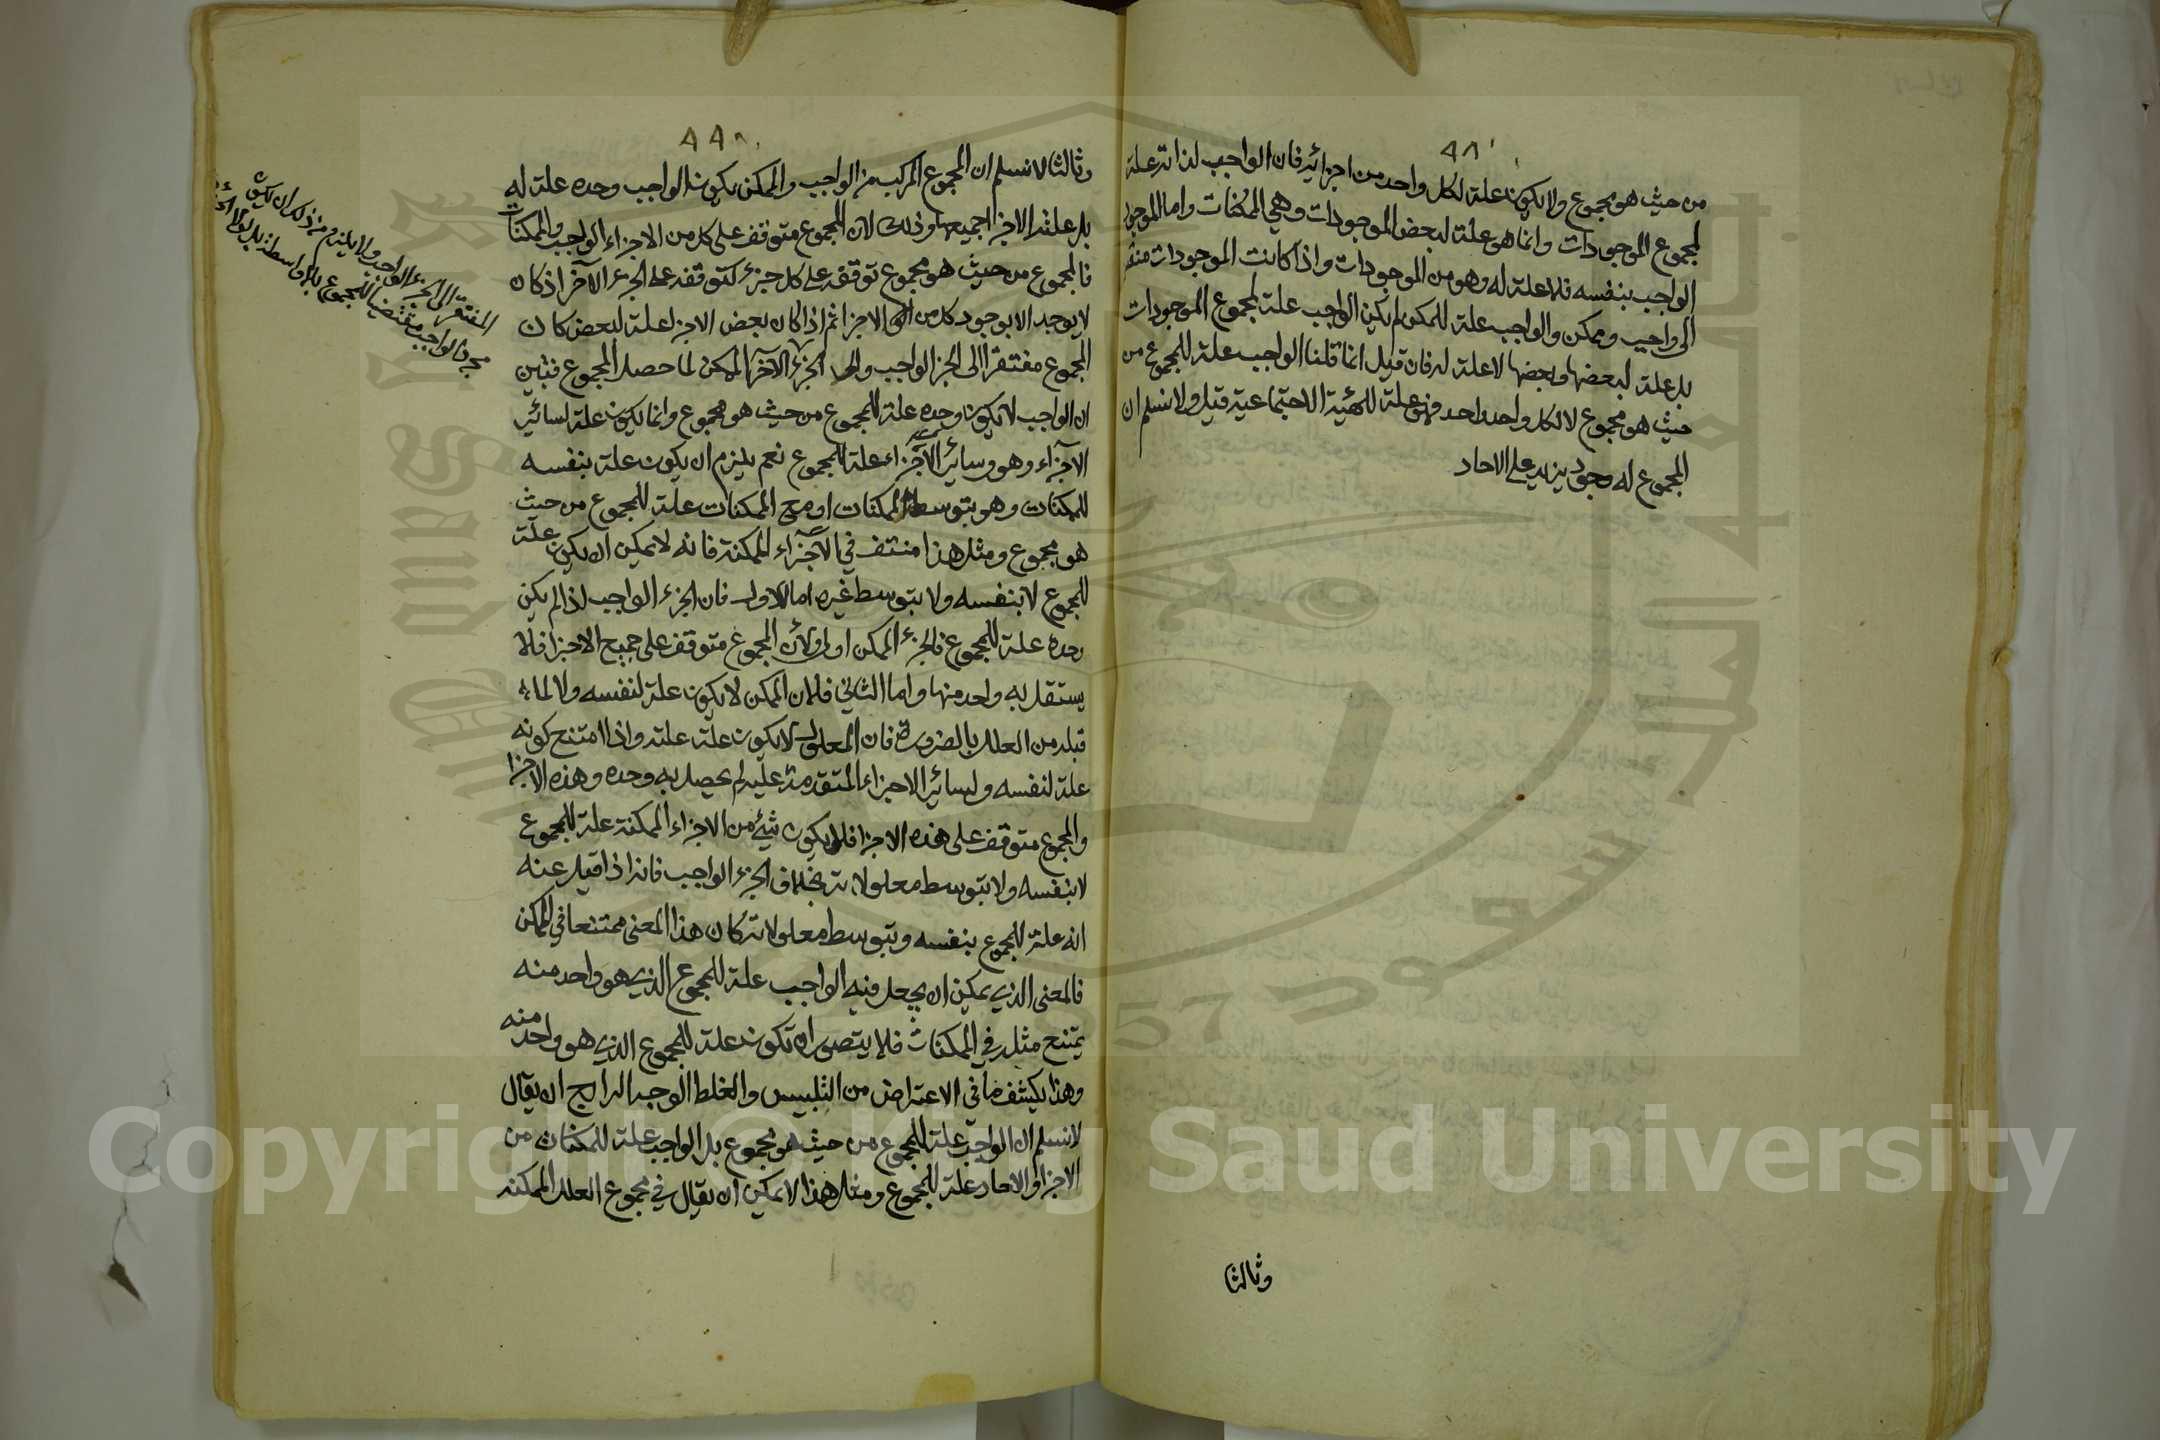 من حيث هو مجموع ولا يكون علة لكل واحد من اجزائه فان الواجب لذاته علة
لمجموع الموجودات وانما هو علة لبعض الموجودات وهي الممكنات واما الموجود
الواجب بنفسه فلا علة له وهو من الموجودات واذا كانت الموجودات منقسمة
الى واجب وممكن والواجب علة للممكن لم يكن الواجب علة لمجموع الموجودات
بل علة لبعضها وبعضها لا علة له فان قيل انما قلنا الواجب علة للمجموع من
حيث هو مجموع لا لكل واحد واحد فهو علة للهيئة الاجتماعية قيل ولا نسلم ان
المجموع له وجود يزيد على الاحاد
وثالثا
وثالثا لا نسلم ان المجموع المركب من الواجب والممكن يكون الواجب وحده علة له
بل علته الاجزا جميعها وذلك لان المجموع متوقف على كل من الاجزاء الواجب والممكنات
فالمجموع من حيث هو مجموع توقفه على كل جزء كتوقفه على الجزء الآخر اذ كان
لا يوجد الا بوجود كل من الاجزا ثم اذا كان بعض الاجزا علة لبعض كان
المجموع مفتقرا الى الجز الواجب والى الجزء الآخر الممكن لما حصل المجموع فتبين
ان الواجب لا يكون وحده علة للمجموع من حيث هو مجموع وانما يكون علة لسائر
الاجزاء وهو وسائر الاجزاء علة للمجموع نعم يلزم ان يكون علة بنفسه
للممكنات وهو بتوسط الممكنات او مع الممكنات علة للمجموع من حيث
هو مجموع ومثل هذا منتف في الاجزاء الممكنة فانه لا يمكن ان يكون علة
للمجموع لا بنفسه ولا بتوسط غيره اما الاول فان الجزء الواجب اذا لم يكن
وحده علة للمجموع فالجزء الممكن اولى ولان المجموع متوقف على جميع الاجزا فلا
يستقل به واحد منها واما الثاني فلان الممكن لا يكون علة لنفسه ولا لما
قبله من العلل بالضرورة فان المعلول لا يكون علة علته واذا امتنع كونه
علة لنفسه ولسائر الاجزاء المتقدمة عليه لم يحصل به وحده وهذه الاجزا
والمجموع متوقف على هذه الاجزا فلا يكون شيء من الاجزاء الممكنة علة للمجموع
لا بنفسه ولا بتوسط معلولاته بخلاف الجزء الواجب فانه اذا قيل عنه
انه علة للمجموع بنفسه وبتوسط معلولاته كان هذا المعنى ممتنعا في الممكن
فالمعنى الذي يمكن ان يجعل فيه الواجب علة للمجموع الذي هو واحد منه
يمتنع مثله في الممكنات فلا يتصور ان تكون علة للمجموع الذي هو واحد منه
وهذا يكشف ما في الاعتراض من التلبيس والغلط الوجه الرابع ان يقال
لا نسلم ان الواجب علة للمجموع من حيث هو مجموع بل الواجب علة للممكنات من
الاجزا والاحاد علة للمجموع ومثل هذا لا يمكن ان يقال في مجموع العلل الممكنة
المفتقر الى الجزء الواجب ولا يلزم من ذلك ان يكون
الواجب مقتضيا للمجموع بلا واسطة بل لولا
Copyright © King Saud University